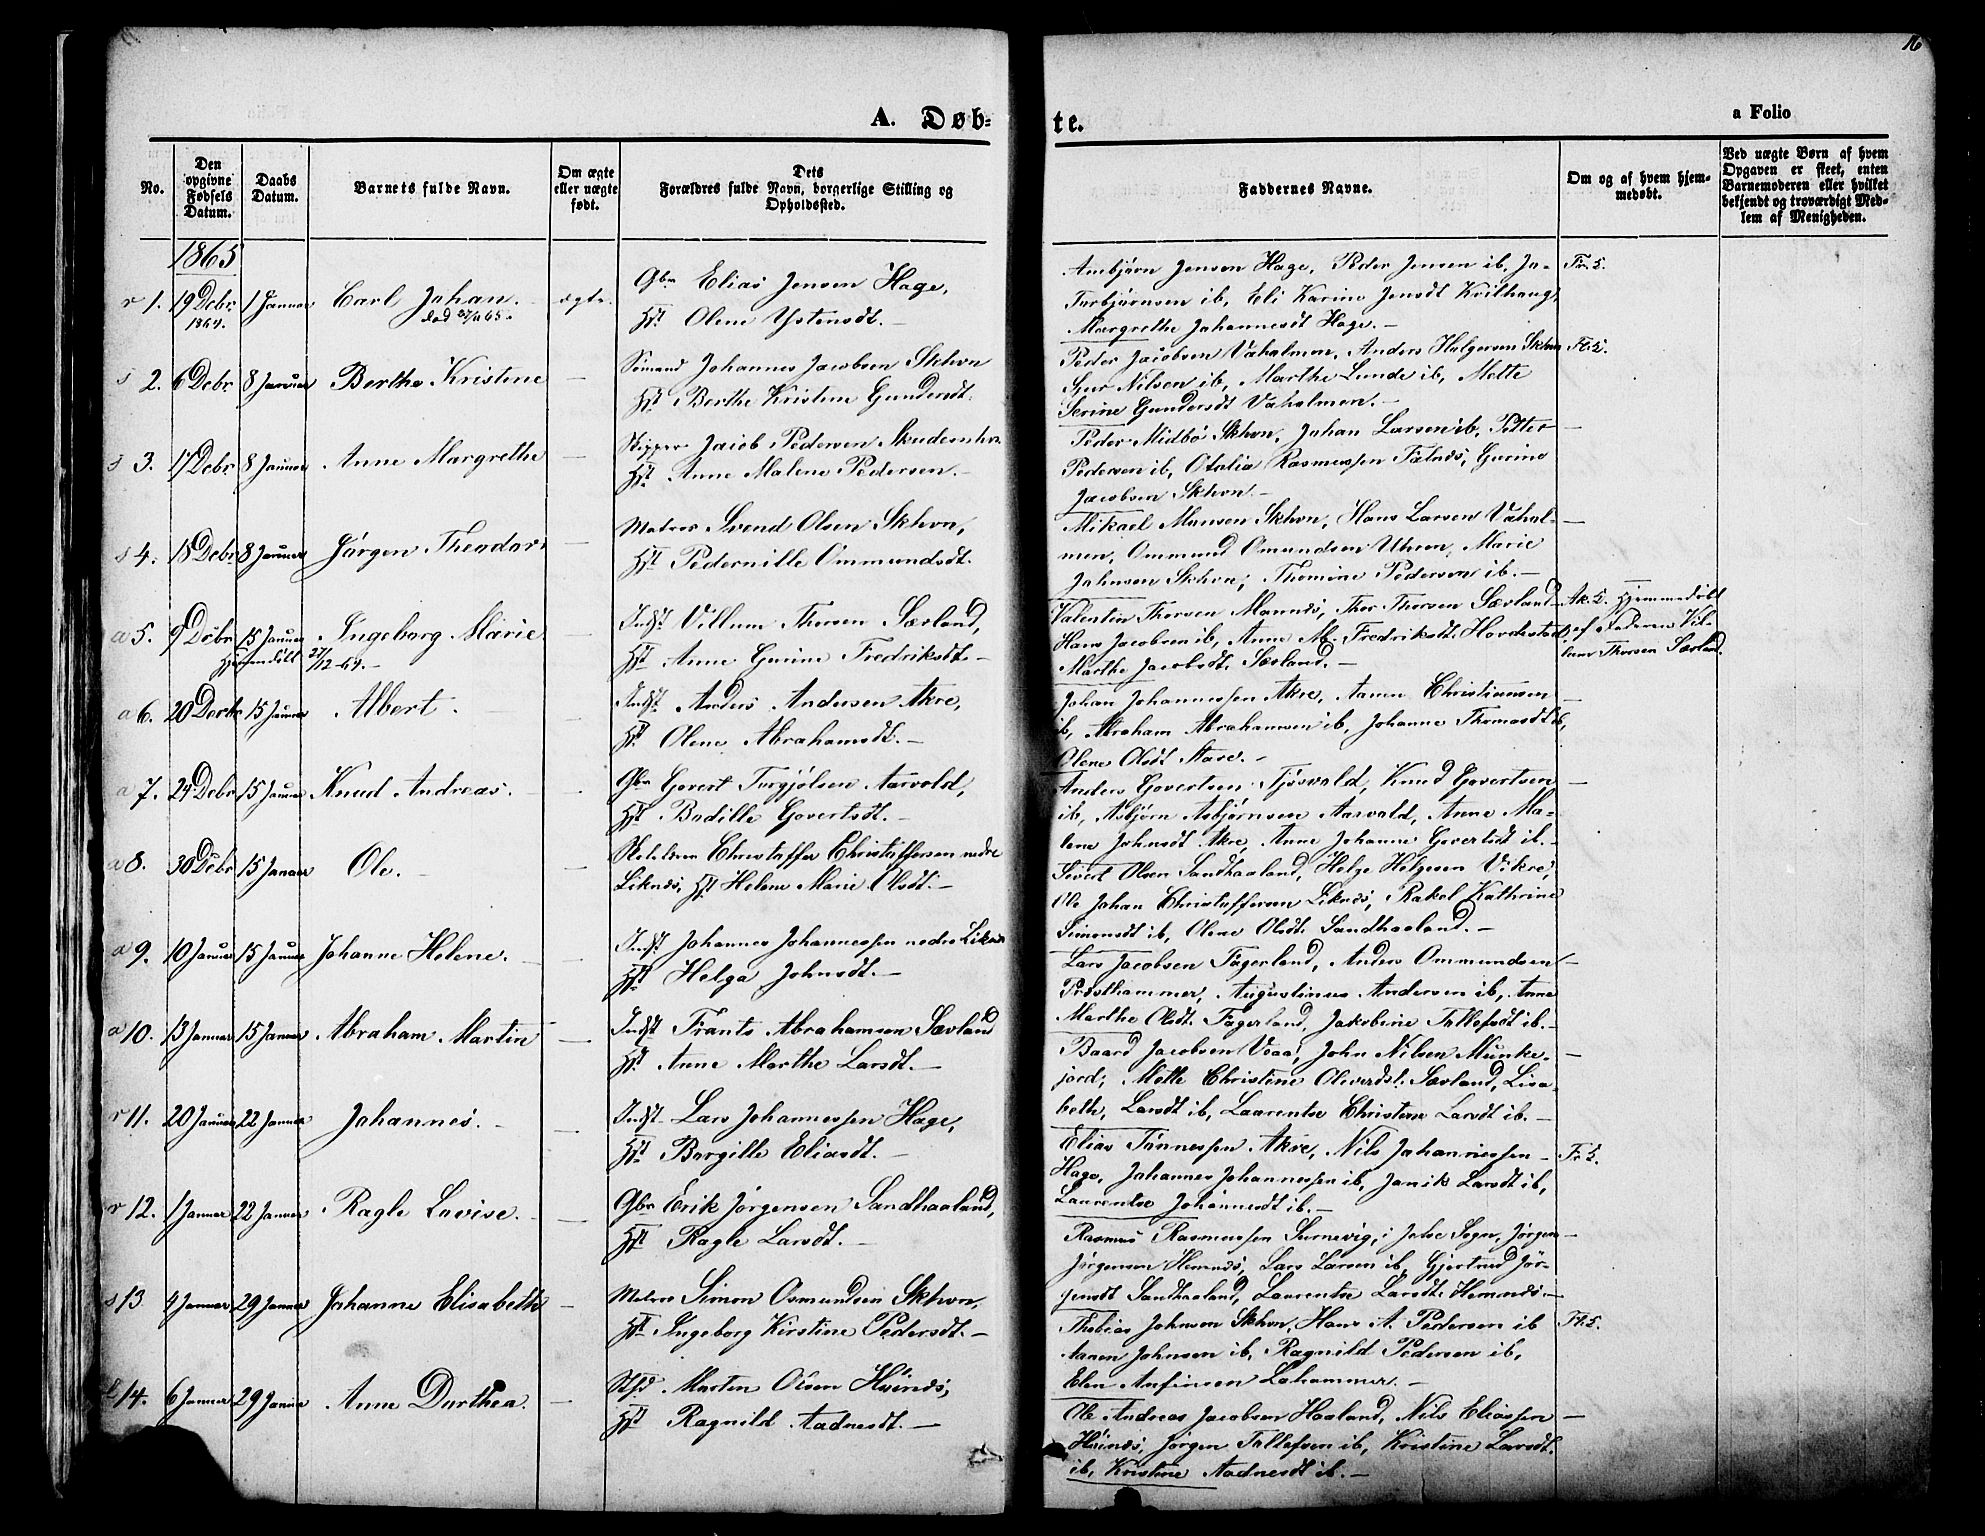 16
A. Døb-
te.
a Folio
No.
Den opgivne Fødsels Datum.
Daabs Datum.
Barnets fulde Navn.
Om ægte eller uægte født.
Dets Forældres fulde Navn, borgerlige Stilling og Opholdssted.
Faddernes Navne.
Om og af hvem hjem-
medøbt.
Ved uægte Børn af hvem
Opgaven er skeet, enten
Barnemoderen eller hvilket
bekjendt og troværdigt Med-
lem af Menigheden.
1865
r 1. 19 Debr 1864. 1 Januar Carl Johan. død 65. ægte.
Gbr Elias Jensen Hage,
Hst Olene Ystensdt. —
Ambjørn Jensen Hage, Peder Jensen ib, Ja-
Torbjørnsen ib, Eli Karine Jensdt
Margrethe Johannesdt Hage. —
s 2. 6 Debr 8 Januar Berthe Kristine —
Sømand Johannes Jacobsen Skhvn
Hst Berthe Kristine
Peder Jacobsen Vaholmen, Anders Helgesen Skhvn
Sjur Nilsen ib, Marthe Lunde ib, Mette
Serine Gundersdt Vaholmen. —
s 3. 17 Debr 8 Januar Anne Margrethe —
Skipper Jacob Pedersen
Hst Anne Malene Pedersen. —
Peder Midbø Skhvn, Johan Larsen ib, Petter —
Pedersen ib, Otalia Rasmussen Falnæs, Gurine
Jacobsen Skhvn. —
s 4. 18 Debr 8 Januar Jørgen Theodor —
Matros Svend Olsen Skhvn,
Hst Pedernille Ommundsdt.
Mikael Monsen Skhvn, Hans Larsen Vahol- —
men, Ommund Omundsen Uhren, Marie
Johnsen Skhvn, Thomine Pedersen ib. —
a 5. 9 Debr 15 Januar Ingeborg Marie —
Hjemmedøbt 27/12 64. —
Indst Villum Thorsen Sævland,
Hst Anne Gurine Fredriksdt. —
Valentin Thorsen Mannæs, Thor Thorsen Sævland
Hans Jacobsen ib, Anne M. Fredriksdt.
Marthe Jacobsdt. Sævland. —
Ak. S. Hjemmedøbt
af Faderen Vil-
lum Thorsen Sævland.
a 6. 20 Debr 15 Januar Albert. —
Indst Anders Andersen Akre,
Hst Olene Abrahamsdt. —
Johan Johannessen Akre, Aanen Christiansen —
ib, Abraham Abrahamsen ib, Johanne Thomasdt ib,
Olene Olsdt Stave. —
a 7. 24 Debr 15 Januar Knud Andreas. —
Gbr Govert Torgjølsen Aarvold,
Hst Bodille Govertsdt. —
Anders Govertsen Tjøsvold, Knud Govertsen —
ib, Asbjørn Asbjørnsen Aarvold, Anne Ma-
lene Johnsdt Akre, Anne Johanne Govertsdt ib. —
a 8. 30 Debr 15 Januar Ole. —
Christoffer Christoffersen nedre
Liknæs, Hst Helene Marie Olsdt. —
Sivert Olsen Sandhaaland, Helge Helgesen Vikre,
Ole Johan Christoffersen Liknæs, Rakel Kathrine
Simonsdt ib, Olene Olsdt. Sandhaaland. —
a 9. 10 Januar 15 Januar Johanne Helene. —
Indst Johannes Johannessen nedre Liknæs
Hst Helga Johnsdt. —
Lars Jacobsen Fagerland, Anders Ommundsen —
Præsthammer, Augustinus Andersen ib, Anne
Marthe Olsdt. Fagerland, Jakobine Tollefsdt ib. —
a 10. 13 Januar 15 Januar Abraham Martin —
Indst Frants Abrahamsen Sævland
Hst Anne Marthe Larsdt. —
Baard Jacobsen Veaa, John Nilsen Munke- —
jord, Mette Christine Oliversdt. Sævland, Lisa-
beth, Larsdt ib, Laurentse Christine Larsdt ib. —
r 11. 20 Januar 22 Januar Johannes. —
Indst Lars Johannessen Hage,
Hst Borgille Eliasdt. —
Elias Tønnessen Akre, Nils Johannessen —
Hage, Johannes Johannessen ib, Janik Larsdt ib,
Laurentse Johannesdt ib. —
r 12. 1 Januar 22 Januar Ragle Lovise. —
Gbr Erik Jørgensen Sandhaaland,
Hst Ragle Larsdt. —
Rasmus Rasmussen i Sogn, Jørgen —
Jørgensen Hemnæs, Lars Larsen ib, Gjertrud Jør-
gensdt Sandhaaland, Laurentse Larsdt. Hemnæs. —
s 13 4 Januar 29 Januar Johanne Elisabeth —
Matros Simon Osmundsen Skhvn,
Hst Ingeborg Kirstine Pedersdt. —
Thobias Johnsen Skhvn, Hans A. Pedersen ib
Aanen Johnsen ib, Ragnild Pedersen ib,
Elen Anfinsen Lahammer. —
14. 6 Januar 29 Januar Anne Dorthea. —
Martin Olsen Høinæs,
Hst Ragnild Aadnesdt. —
Ole Andreas Jacobsen Haaland, Nils Eliassen —
Høinæs, Jørgen Tollefsen ib, Kristine Larsdt.
ib, Kristine Aadnesdt ib. —